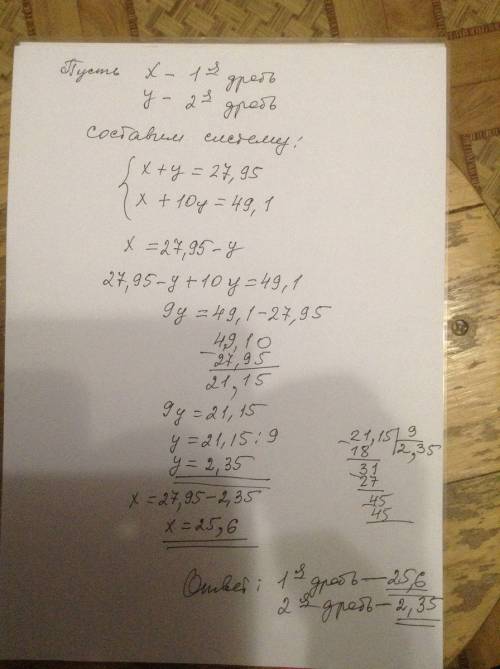 Пусть x – 1я дробь
y – 2я дробь
Составим систему:
{ x + y = 27,95
x + 10y = 49,1
x = 27,95 – y
27,95 – y + 10y = 49,1
9y = 49,1 – 27,95
49,10
– 27,95
21,15
9y = 21,15
y = 21,15 : 9
y = 2,35
x = 27,95 – 2,35
x = 25,6
– 21,15 | 9
18 | 2,35
– 31
27
– 45
45
Ответ: 1я дробь — 25,6
2я дробь – 2,35